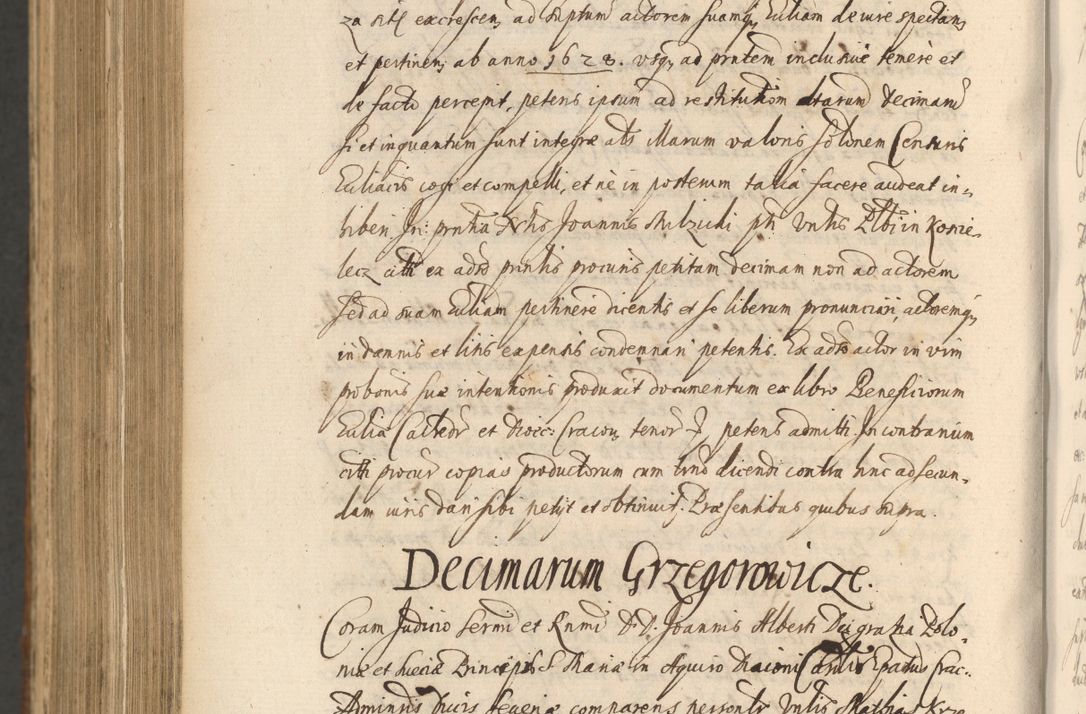 za sitq excrescen, ad suptum actorem suamq, Ecliam de iure spectan,
et pertinen, ab anno 1628. usq, ad prntem inclusive temere et
de facto percepit, petens ipsum ad restitutiom dtarum decimarū
si et inquantum sunt integræ als illarum valoris solonem Censuris
Eccliacis cogi et compelli, et ne in posterum talia facere audeat in,
hiberi In: prntia Joannis ph Vnlis Plbi in Konie,
lecz citti ex adso prinlis procuris petitam decimam non ad actorem
sed ad suam Ecliam pertinere dicentis et se liberum pronunciari, actoremq,
in damnis et litis expensis condemnari petentis. Ex adso actor in vim
probonis suæ intentionis produxit documentum ex libro Beneficiorum
Ecclia Cathedr et Dioec: Cracov, tenor petens admitti. In contrarium
citti procur copias productorum cum trno dicendi contra hinc ad secun,
dam iuris dari sibi petijt et obtinuit. Præsentibus quibus supra.
Decimarum Grzegorowicze.
Coram Judicio Sermi et Rnmi D. D. Joannis Alberti Dei gratia Polo,
niæ et Sueciæ Principis S Mariæ in Aquiro Diaconi Cardlis Epatus Crac:
Adminris Ducis Severiæ comparens personlr Vnlis Mathias Krze